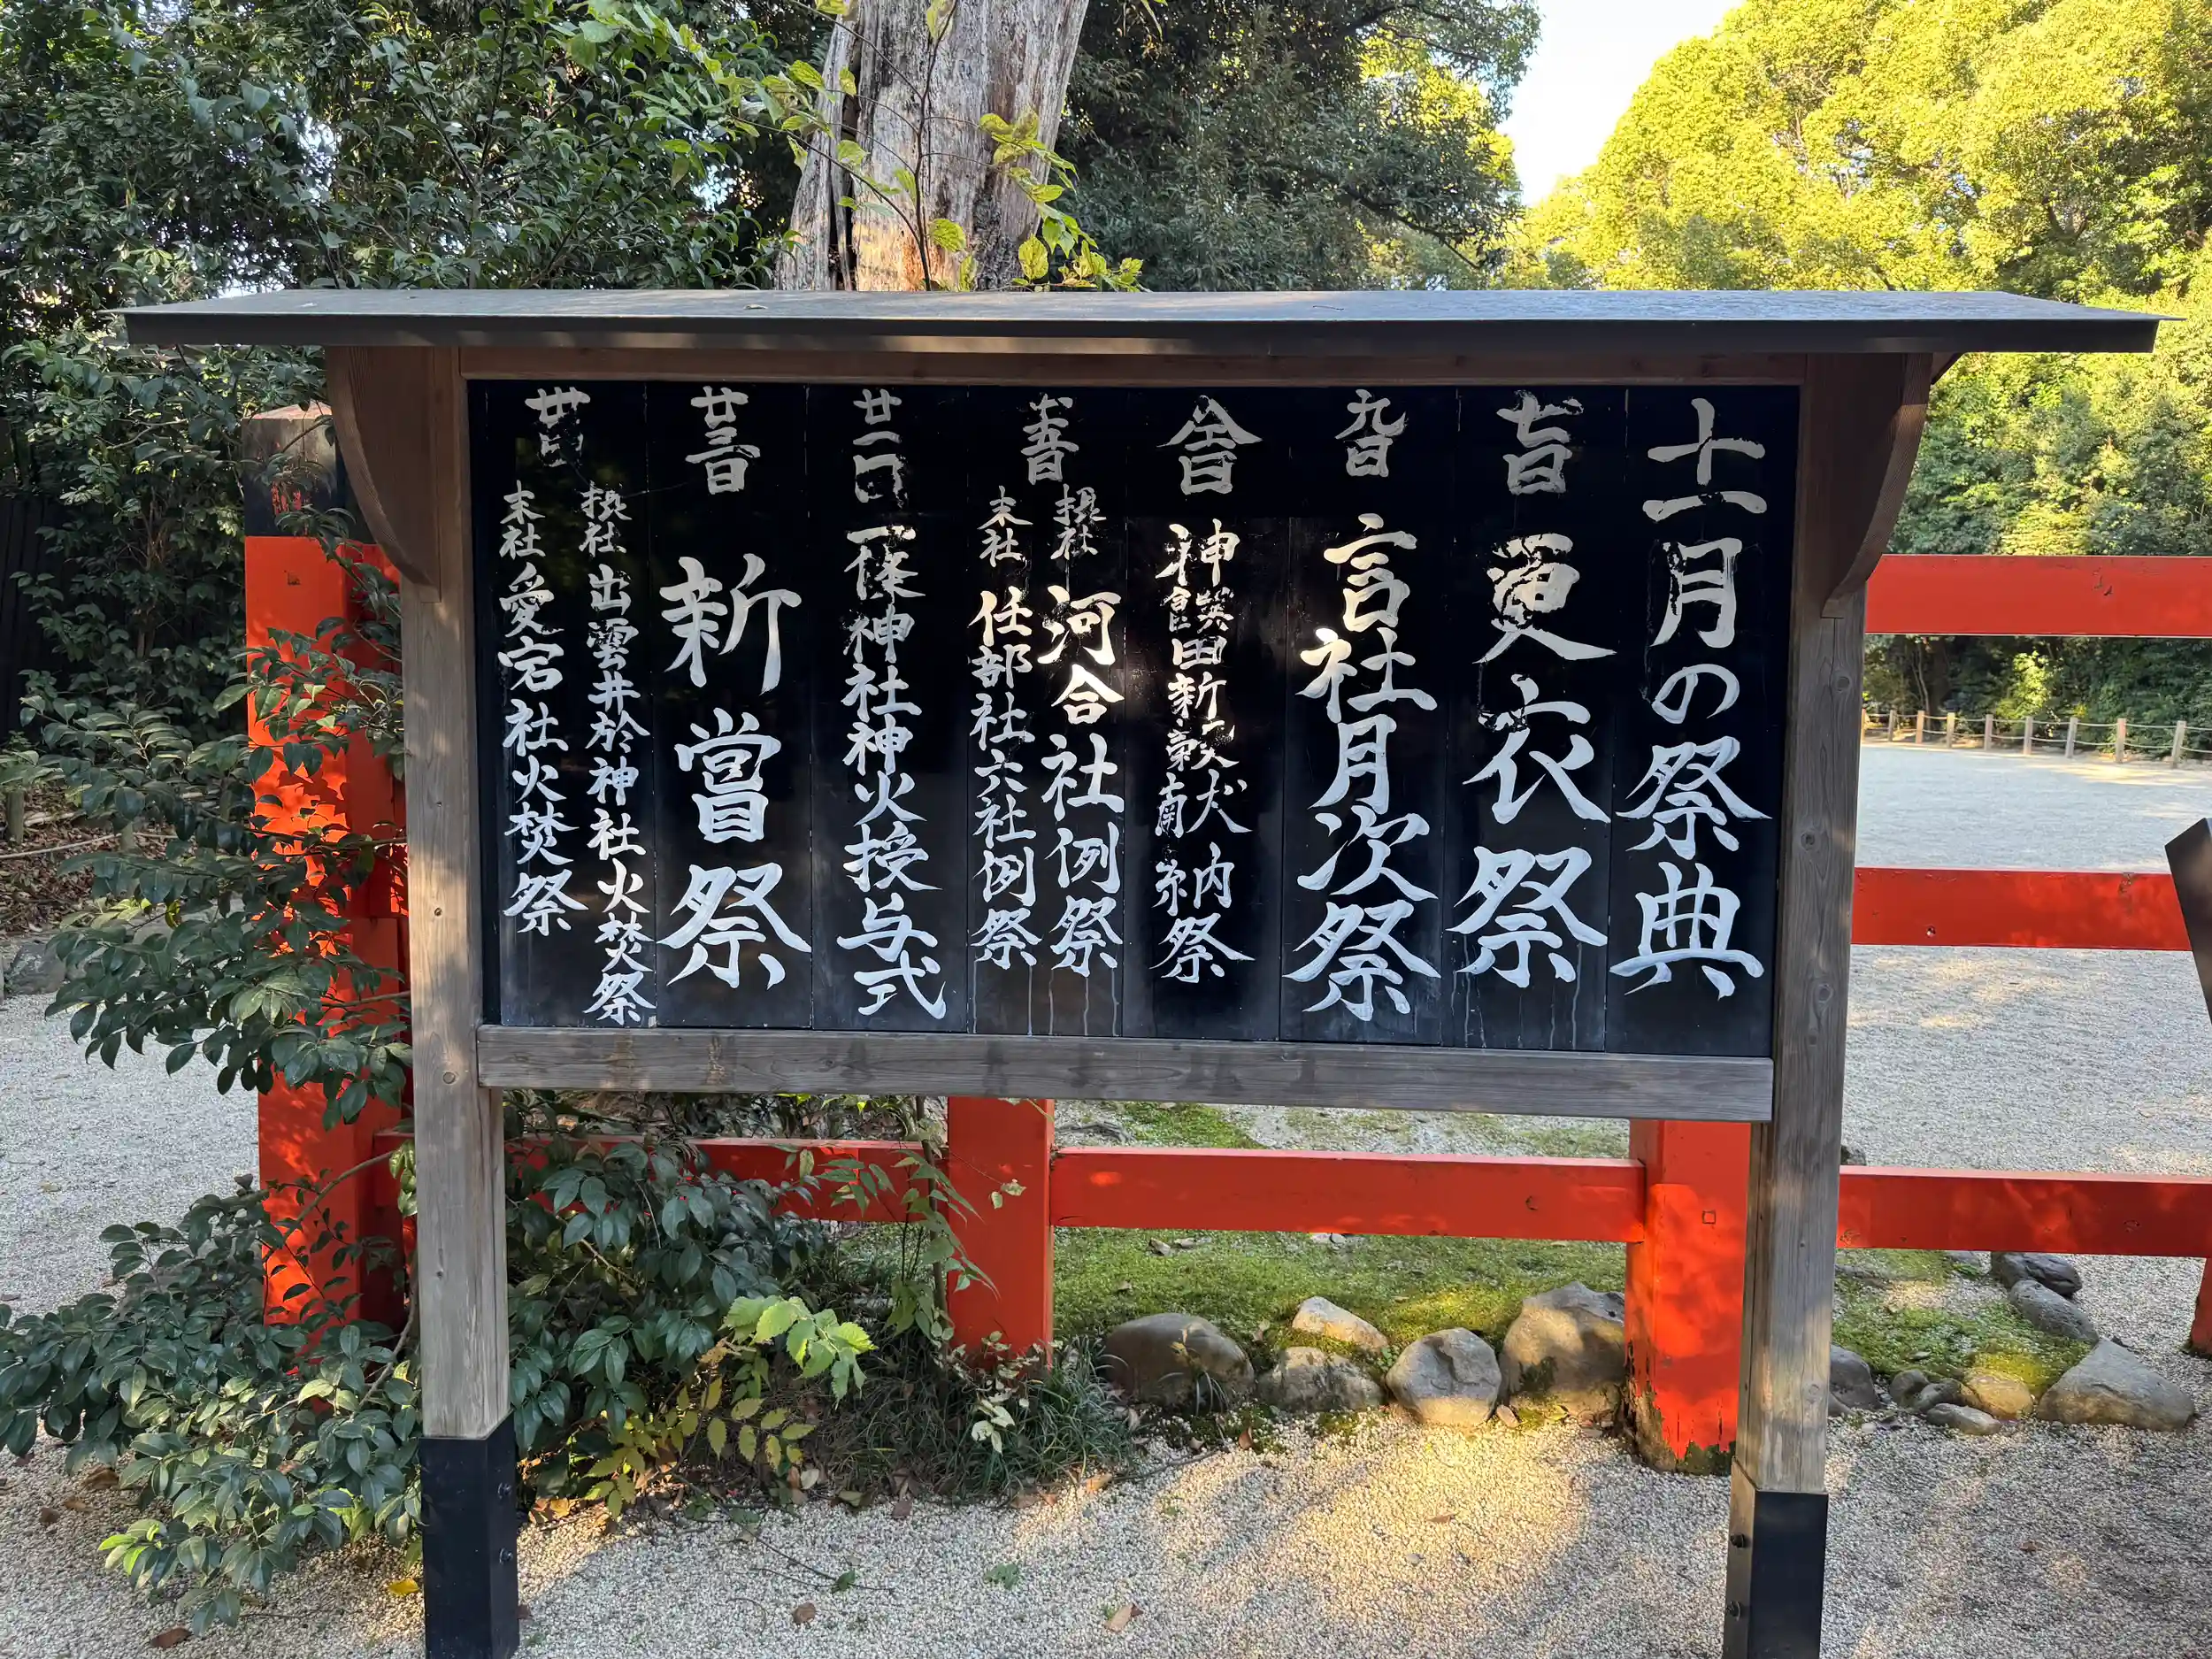 十一月の祭典
七日 更衣祭
九日 言社月次祭
神饌田新穀献納祭
十五日
摂社 河合社例祭
末社 任部社六社例祭
廿一日 一條神社神火授与式
廿三日 新嘗祭
摂社 出雲井於神社火焚祭
末社 愛宕社火焚祭